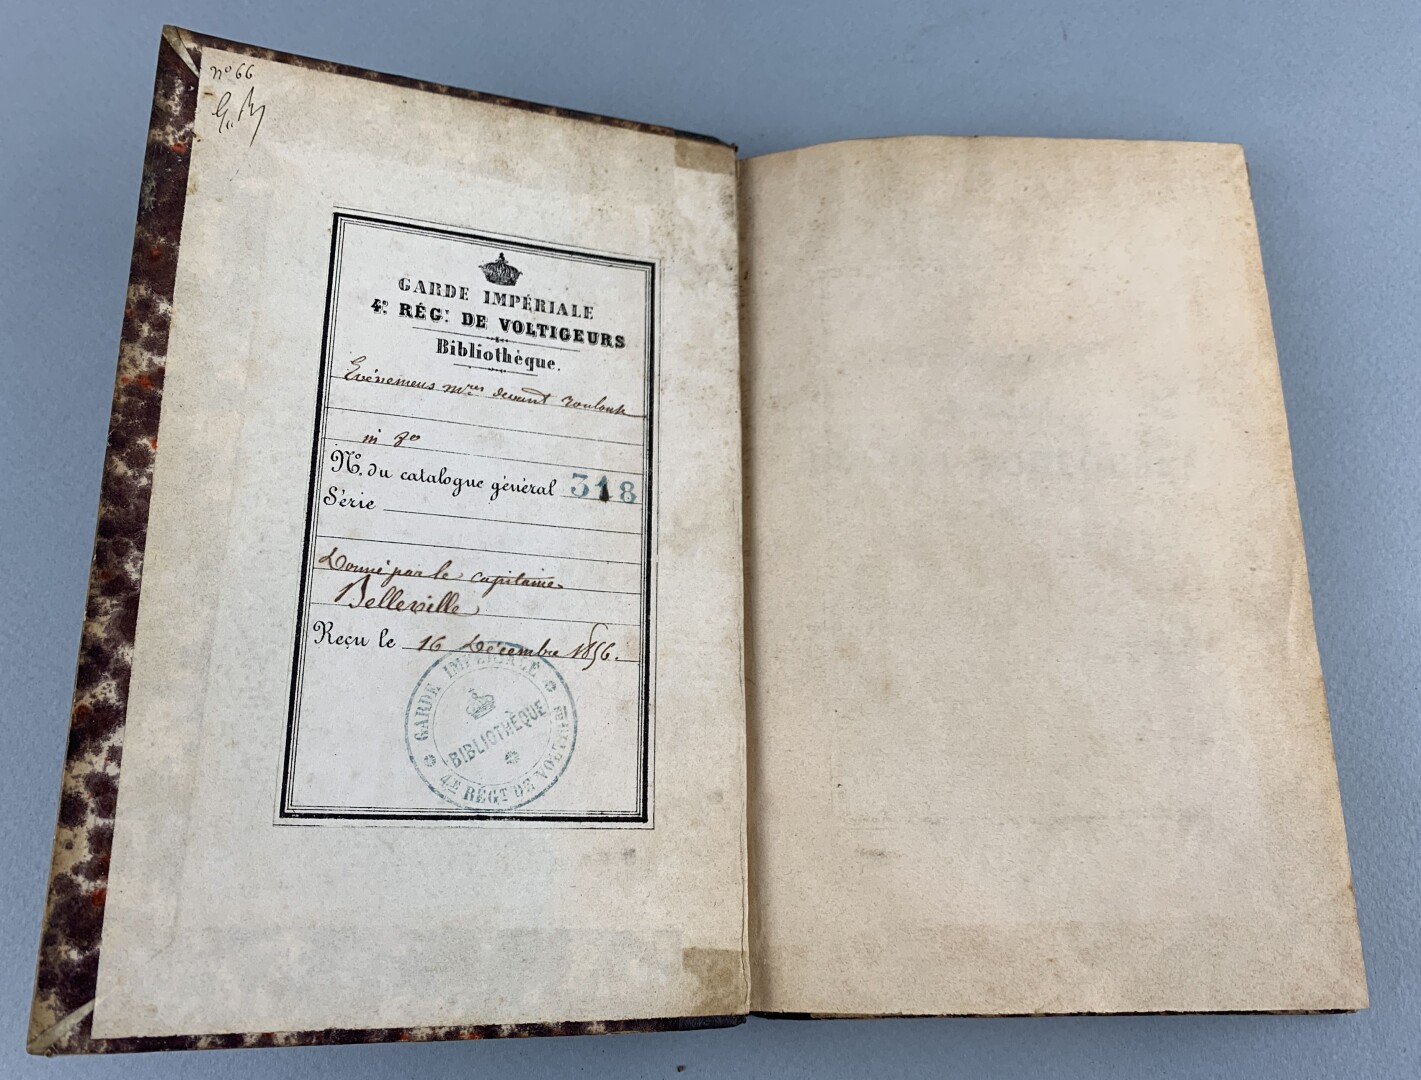 nº 66
GARDE IMPÉRIALE
4.E RÉG.T DE VOLTIGEURS
Bibliothèque.
Evénemens mres devant Toulouse
in 8º
Nº. du catalogue général 318
Série
Donné par le capitaine
Belleville
Reçu le 16 Décembre 1856.
GARDE IMPÉRIALE
BIBLIOTHÈQUE
4.E RÉG.T DE VOLTIGEURS